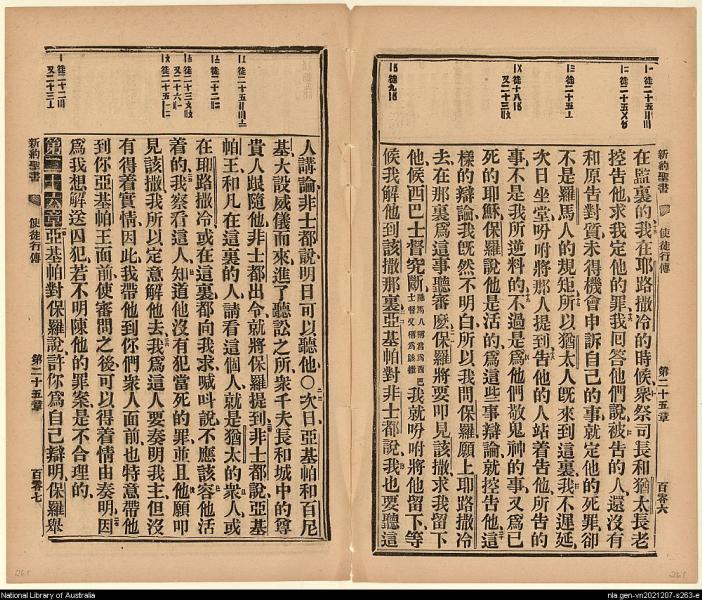 新約聖書 使徒行傳 第二十五章 百零六
在監裏的我在耶路撒冷的時候衆祭司長和猶太長老
控告他求我定他的罪我回答他們說被告的人還沒有
和原告對質未得機會申訴自己的事就定他的死罪卻
不是羅馬人的規矩所以猶太人旣來到這裏我不遲延
次日坐堂吩咐將那人提到告他的人站着告他所告的
事不是我所逆料的不過是爲他們敬鬼神的事又爲已
死的耶穌保羅說他是活的爲這些事辯論就控告他這
樣的辯論我旣然不明白所以我問保羅願上耶路撒冷
去在那裏爲這事聽審麼保羅將要叩見該撒求我留下
他候西巴士督究斷我就吩咐將他留下等
候我解他到該撒那裏亞基帕對非士都說我也要聽這
人講論非士都說明日可以聽他○次日亞基帕和百尼
基大設威儀而來進了聽訟之所衆千夫長和城中的尊
貴人跟隨他非士都出令就將保羅提到非士都說亞基
帕王和凡在這裏的人請看這個人就是猶太的衆人或
在耶路撒冷或在這裏都向我求喊叫說不應該容他活
着的我察看這人知道他沒有犯當死的罪並且他願叩
見該撒我所以定意解他去我爲這人要奏明我主但沒
有得着實情因此我帶他到你們衆人面前也特意帶他
到你亞基帕王面前使審問之後可以得着情由奏明因
爲我想解送囚犯若不明陳他的罪案是不合理的
第二十六章亞基帕對保羅說許你爲自己辯明保羅舉
新約聖書 使徒行傳 第二十五章 百零七
National Library of Australia
nla.gen-vn2021207-s263-e